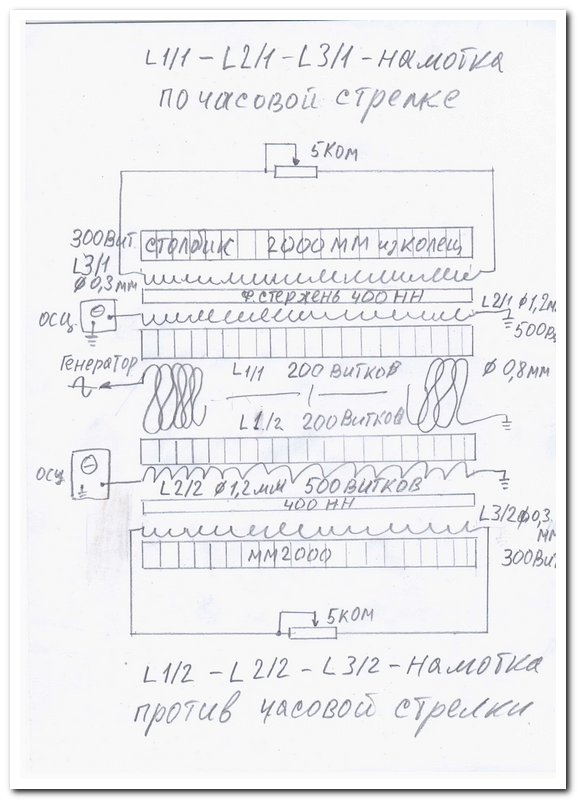 L1/1 - L2/1 - L3/1 - намотка
по часовой стрелке
5 КОМ
300 Вит.
столбик 2000 ММ из колец
L3/1
ф 0,3 мм
Ф. стержень 400 НН
L2/1 ф 1,2м
500
ОСЦ.
Генератор
L1/1 200 витков
ф 0,8 мм
L1/2 200 витков
ОСЦ
L2/2 ф 1,2 мм 500 витков
400 НН
L3/2 ф0,3
мм
300 Вит
ММ2000
5 КОМ
L1/2 - L2/2 - L3/2 - намотка
против часовой стрелки